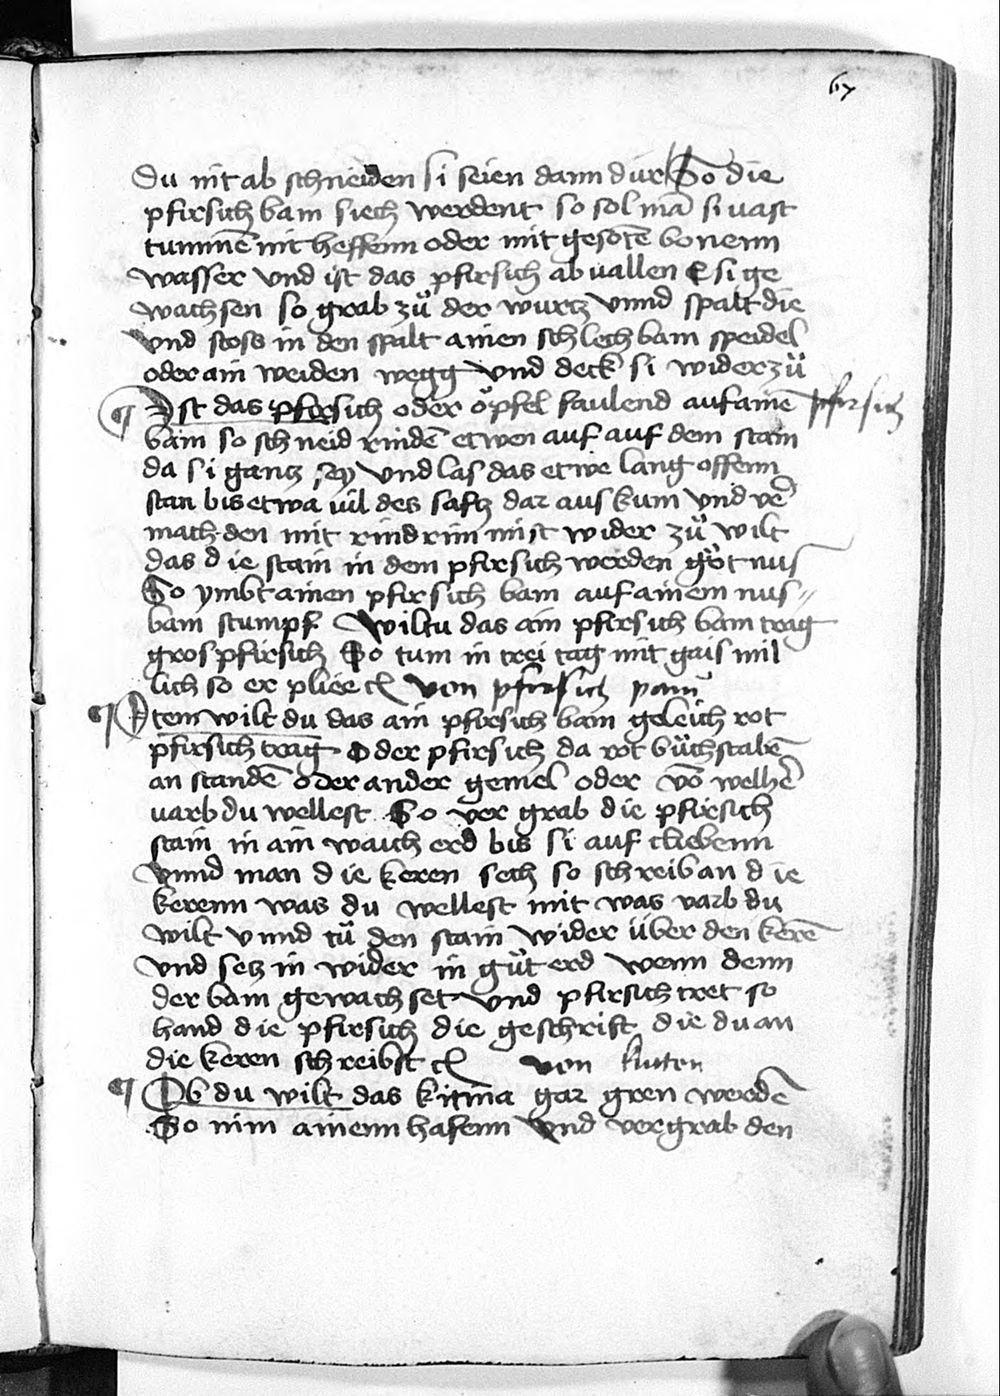 67
du nit ab schneiden si seien dann dür So die
pfirsich bam siech werdent so sol mā si vast
tummē mit heffenn oder mit gesotē bonenn
wasser vnd ist das pfirsich ab vallen E si ge
wachsen so grab zů der wurtz vnnd spalt die
vnd stoss in den spalt ainen schlech bam speidel
oder ain weiden wegg vnd deck si wider zů
¶ Ist das pfersich oder öpfel faulend auf ainē pfirsich
bam so schneid rindē etwen auf auf dem stam
da si gantz sey vnd las das etwe lang offenn
stan bis etwa uil des saftz dar aus kum vnd v̄
mach den mit rindrim mist wider zů wilt
das die stain in dem pfirsich werden gůt nus
So ymbt ainen pfirsich bam auf ainem nus〃
bam stumpf Wiltu das ain pfirsich bam trag
gros pfirsich So tum in trei tag mit gais mil
lich so er pliee von pfirsich pam
¶ Item wilt du das ain pfirsich bam geleich rot
pfirsich trag Oder pfirsich da rot bůchstabē
an standē oder ander gemel oder vō welhē
varb du wellest So ver grab die pfirsich
stain in ain waich erd bis si auf cliebenn
vnnd man die keren sech so schreib an die
kerenn was du wellest mit was varb du
wilt vnnd tů den stain wider über den kerē
vnd setz in wider in gůt erd wenn denn
der bam gewachset vnd pfirsich tret so
hand die pfirsich die geschrift die du an
die keren schreibst von kuten
¶ Ob du wilt das kitina gar gren werdē
So nim ainenn hafenn vnd vergrab den